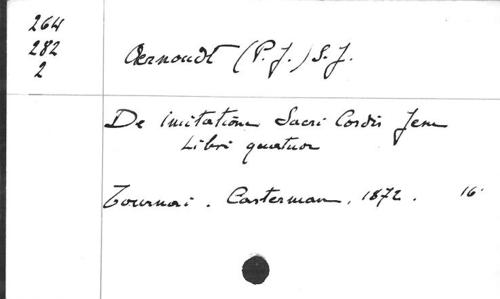 264
282
2
Aernoudt (P. J.) S. J.
De imitatione Sacri Cordis Jesu
Libri quatuor
Tournai. Casterman, 1872. 16°